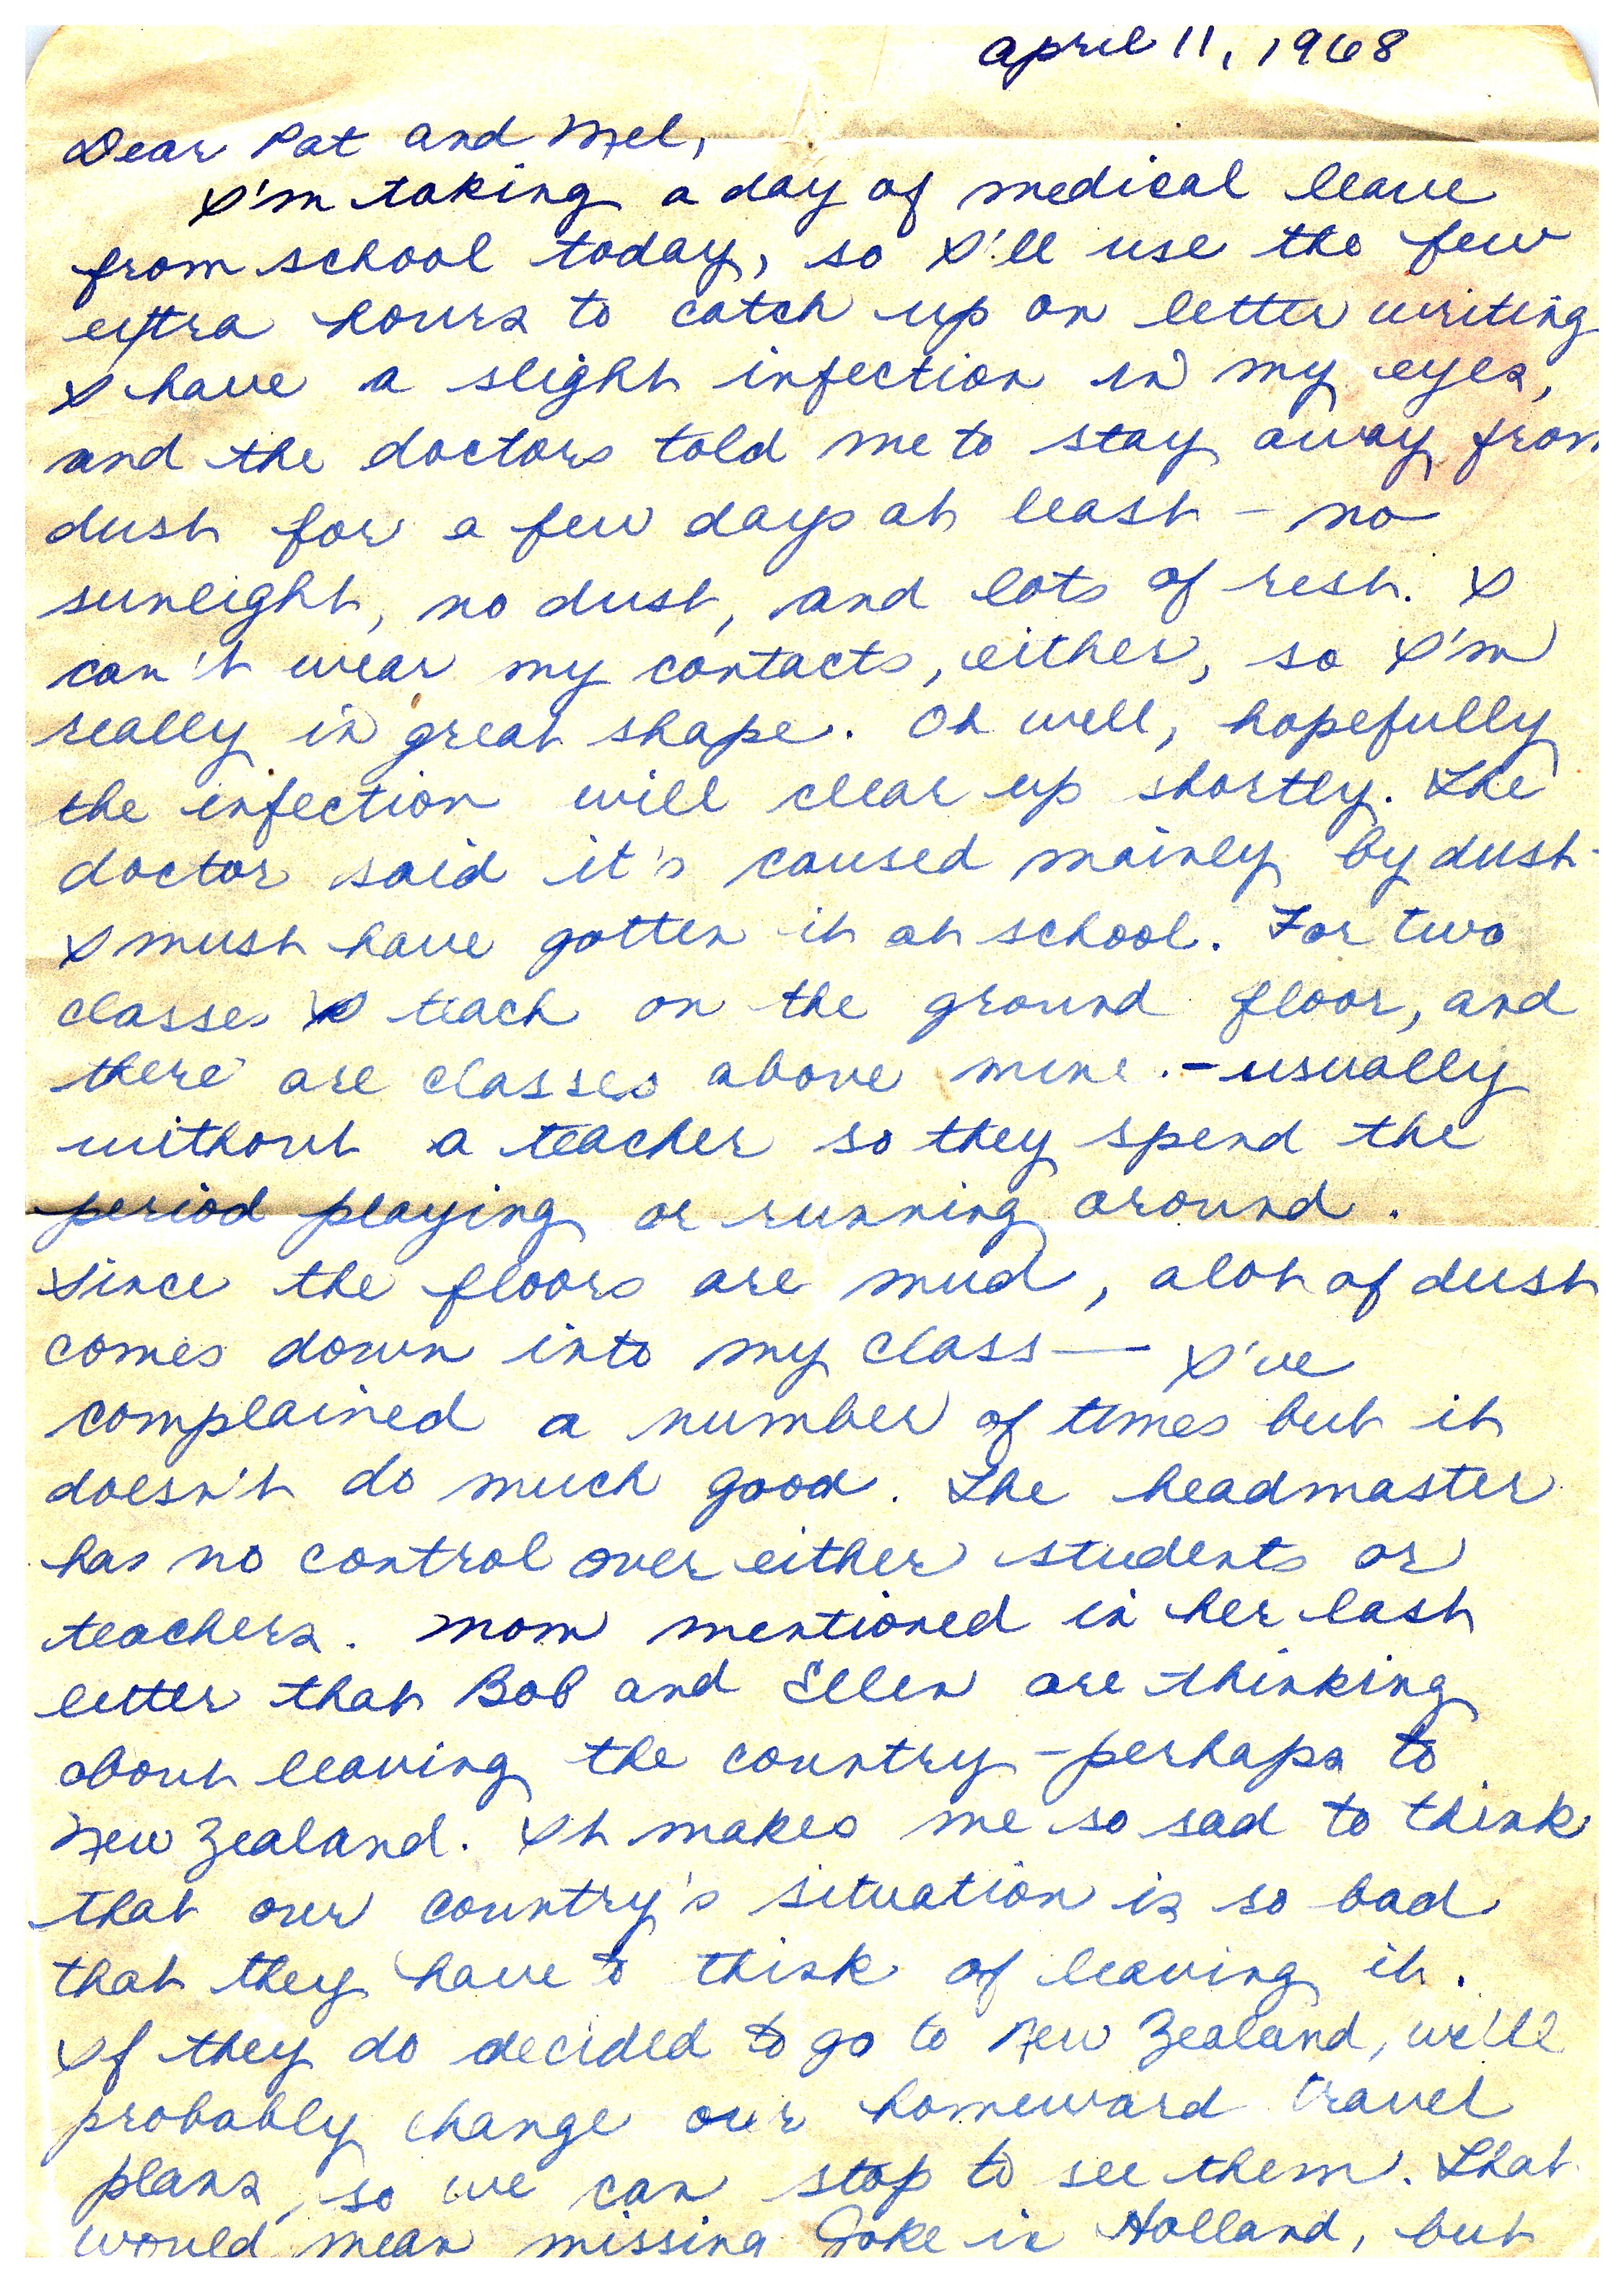 April 11, 1968
Dear Pat and Mel,
I'm taking a day of medical leave
from school today, so I'll use the few
extra hours to catch up on letter writing
I have a slight infection in my eyes,
and the doctors told me to stay away from
dust for a few days at least - no
sunlight, no dust, and lots of rest. I
can't wear my contacts, either, so I'm
really in great shape. Oh well, hopefully
the infection will clear up shortly. The
doctor said it's caused mainly by dust -
I must have gotten it at school. For two
classes I teach on the ground floor, and
there are classes above mine. - usually
without a teacher so they spend the
period playing or running around.
Since the floors are mud, alot of dust
comes down into my class — I've
complained a number of times but it
doesn't do much good. The headmaster
has no control over either students or
teachers. Mom mentioned in her last
letter that Bob and Ellen are thinking
about leaving the country - perhaps to
New Zealand. It makes me so sad to think
that our country's situation is so bad
that they have to think of leaving it.
If they do decided to go to New Zealand, we'll
probably change our homeward travel
plans, so we can stop to see them. That
would mean missing Joke in Holland, but